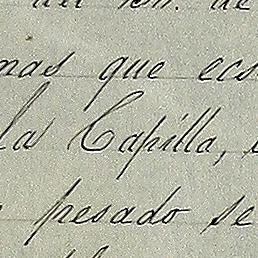 del Sn. de
mas que eco
la Capilla,
pesado se